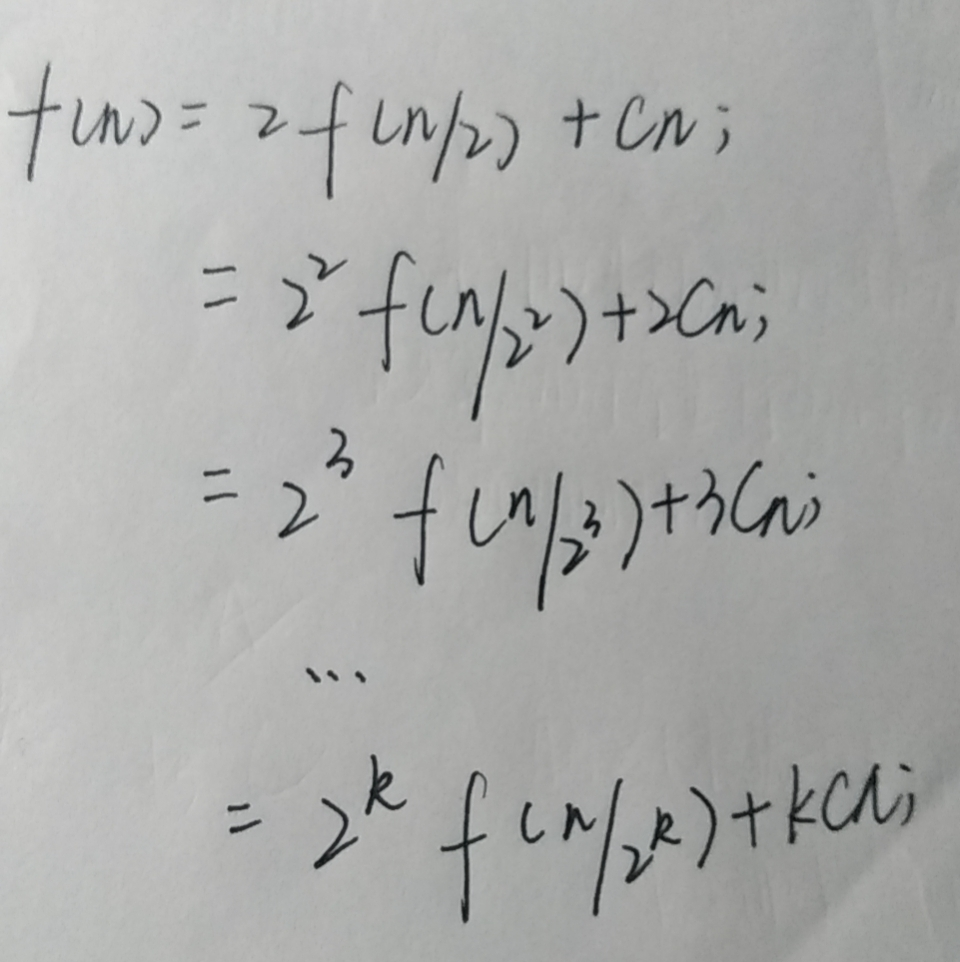 f(n) = 2f(n/2) + Cn;
= 2² f(n/2²) + 2Cn;
= 2³ f(n/2³) + 3Cn;
...
= 2ᵏ f(n/2ᵏ) + kCn;